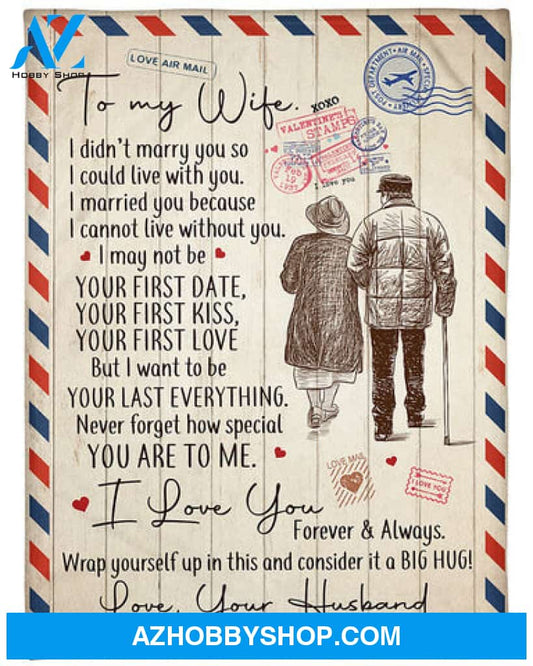 AZ
HOBBY SHOP
LOVE AIR MAIL
To my Wife.
XOXO
VALENTINE'S
STAMPS
I love you
I didn't marry you so
I could live with you.
I married you because
I cannot live without you.
I may not be
YOUR FIRST DATE,
YOUR FIRST KISS,
YOUR FIRST LOVE
But I want to be
YOUR LAST EVERYTHING.
Never forget how special
YOU ARE TO ME.
LOVE MAIL
I LOVE YOU
I Love You
Forever & Always.
Wrap yourself up in this and consider it a BIG HUG!
Love, Your Husband
AZHOBBYSHOP.COM